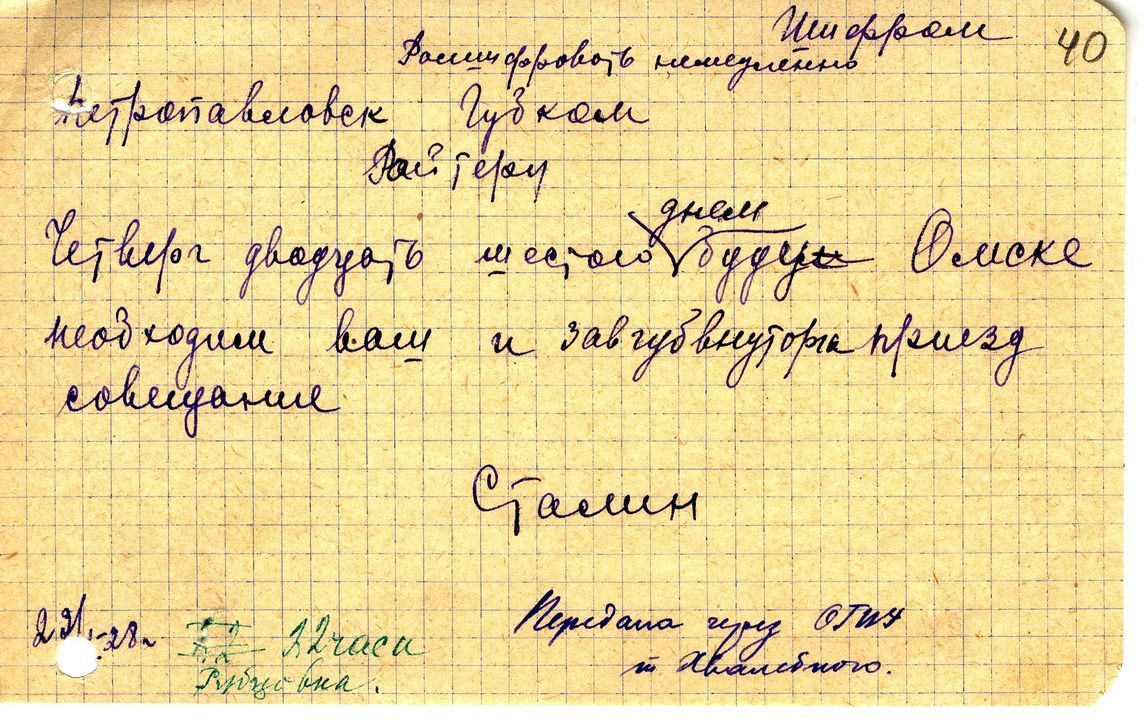 Шифром
40
Расшифровать немедленно
Петропавловск Губком
Райтеру
днем
Четверг двадцать шестого буду Омске
необходим ваш и завгубвнуторга приезд
совещание
Сталин
22/I-28г 22 часа
Рубцовка.
Передана через ОГПУ
т Хвалебного.